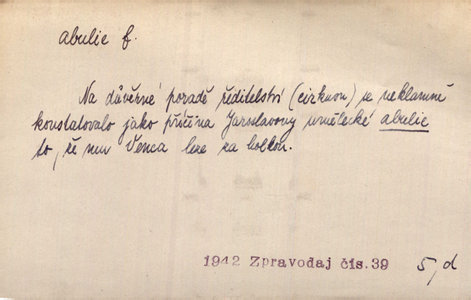 abulie f.
Na důvěrné poradě ředitelství (cirkusu) se neklamně
konstatovalo jako příčina Jaroslavovy umělecké abulie
to, že mu Venca leze za holkou.
1942 Zpravodaj čís.39 5, d